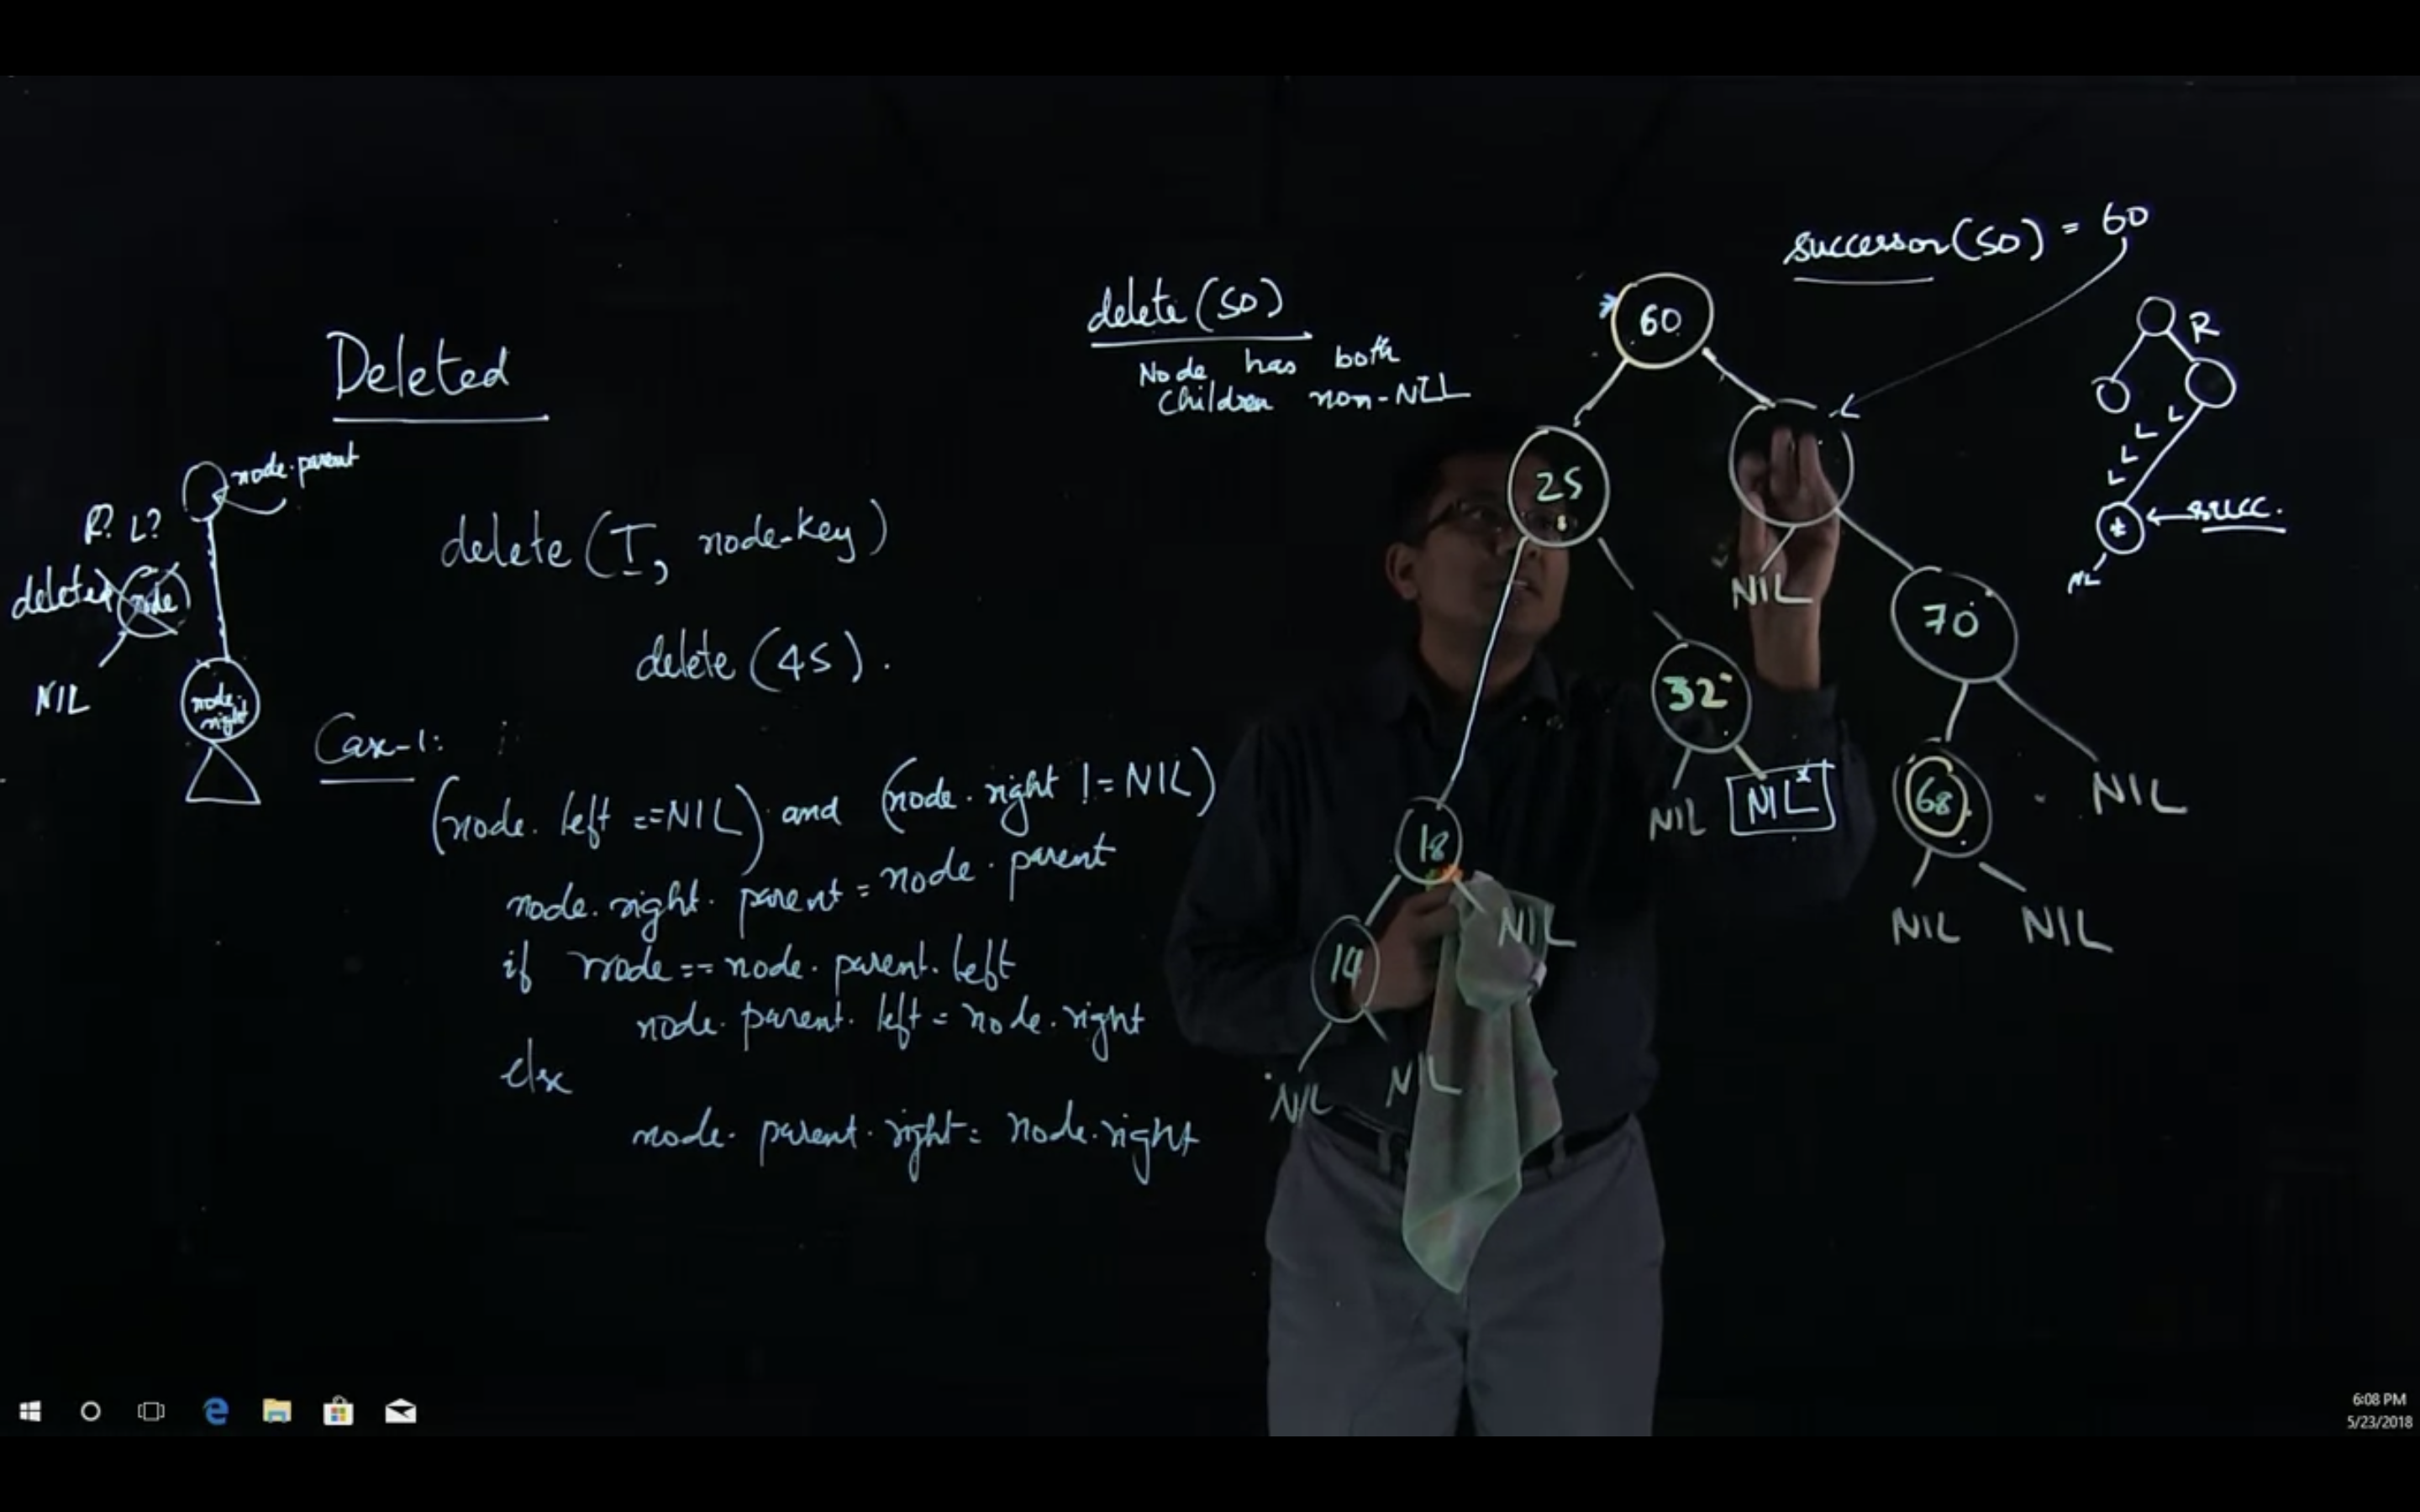 Deleted
node.parent
R? L?
deleted
node
NIL
node.
right
delete (T, node-key)
delete (45).
Case-1:
(node. left ==NIL) and (node. right != NIL)
node. right. parent = node. parent
if node == node. parent. left
node. parent. left = node. right
else
node. parent. right = node. right
delete (50)
Node has both
children non-NIL
successor(50) = 60
60
25
NIL
70
32
NIL
NIL*
68
NIL
NIL
NIL
18
NIL
14
NIL
NIL
R
L
L
L
L
*
succ.
NIL
6:08 PM
5/23/2018